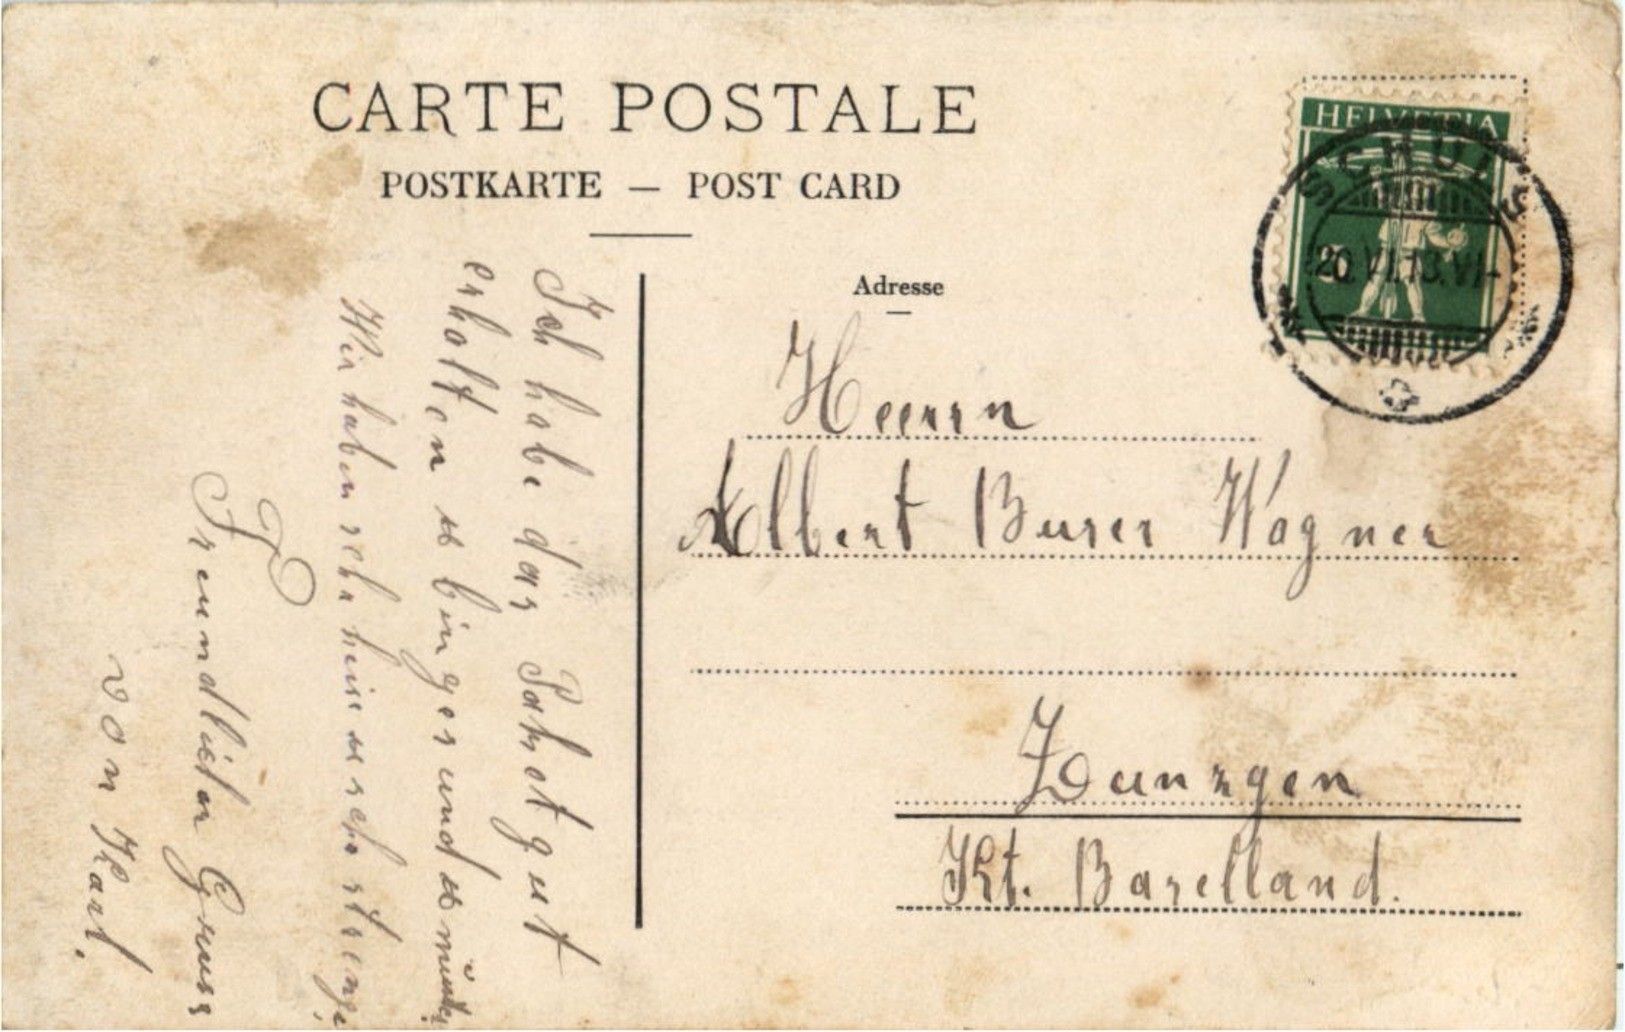 CARTE POSTALE
POSTKARTE — POST CARD
HELVETIA
SCHULS
20.VI.13.VI-
Adresse
Heerrn
Albert Burer Wagner
Zunzgen
Kt. Baselland.
Ich habe das Paket gut
erhalten u bin gesund u munter
Wir haben sehr heiss u sehr strenge,
Freundlichen Gruss
von Karl.